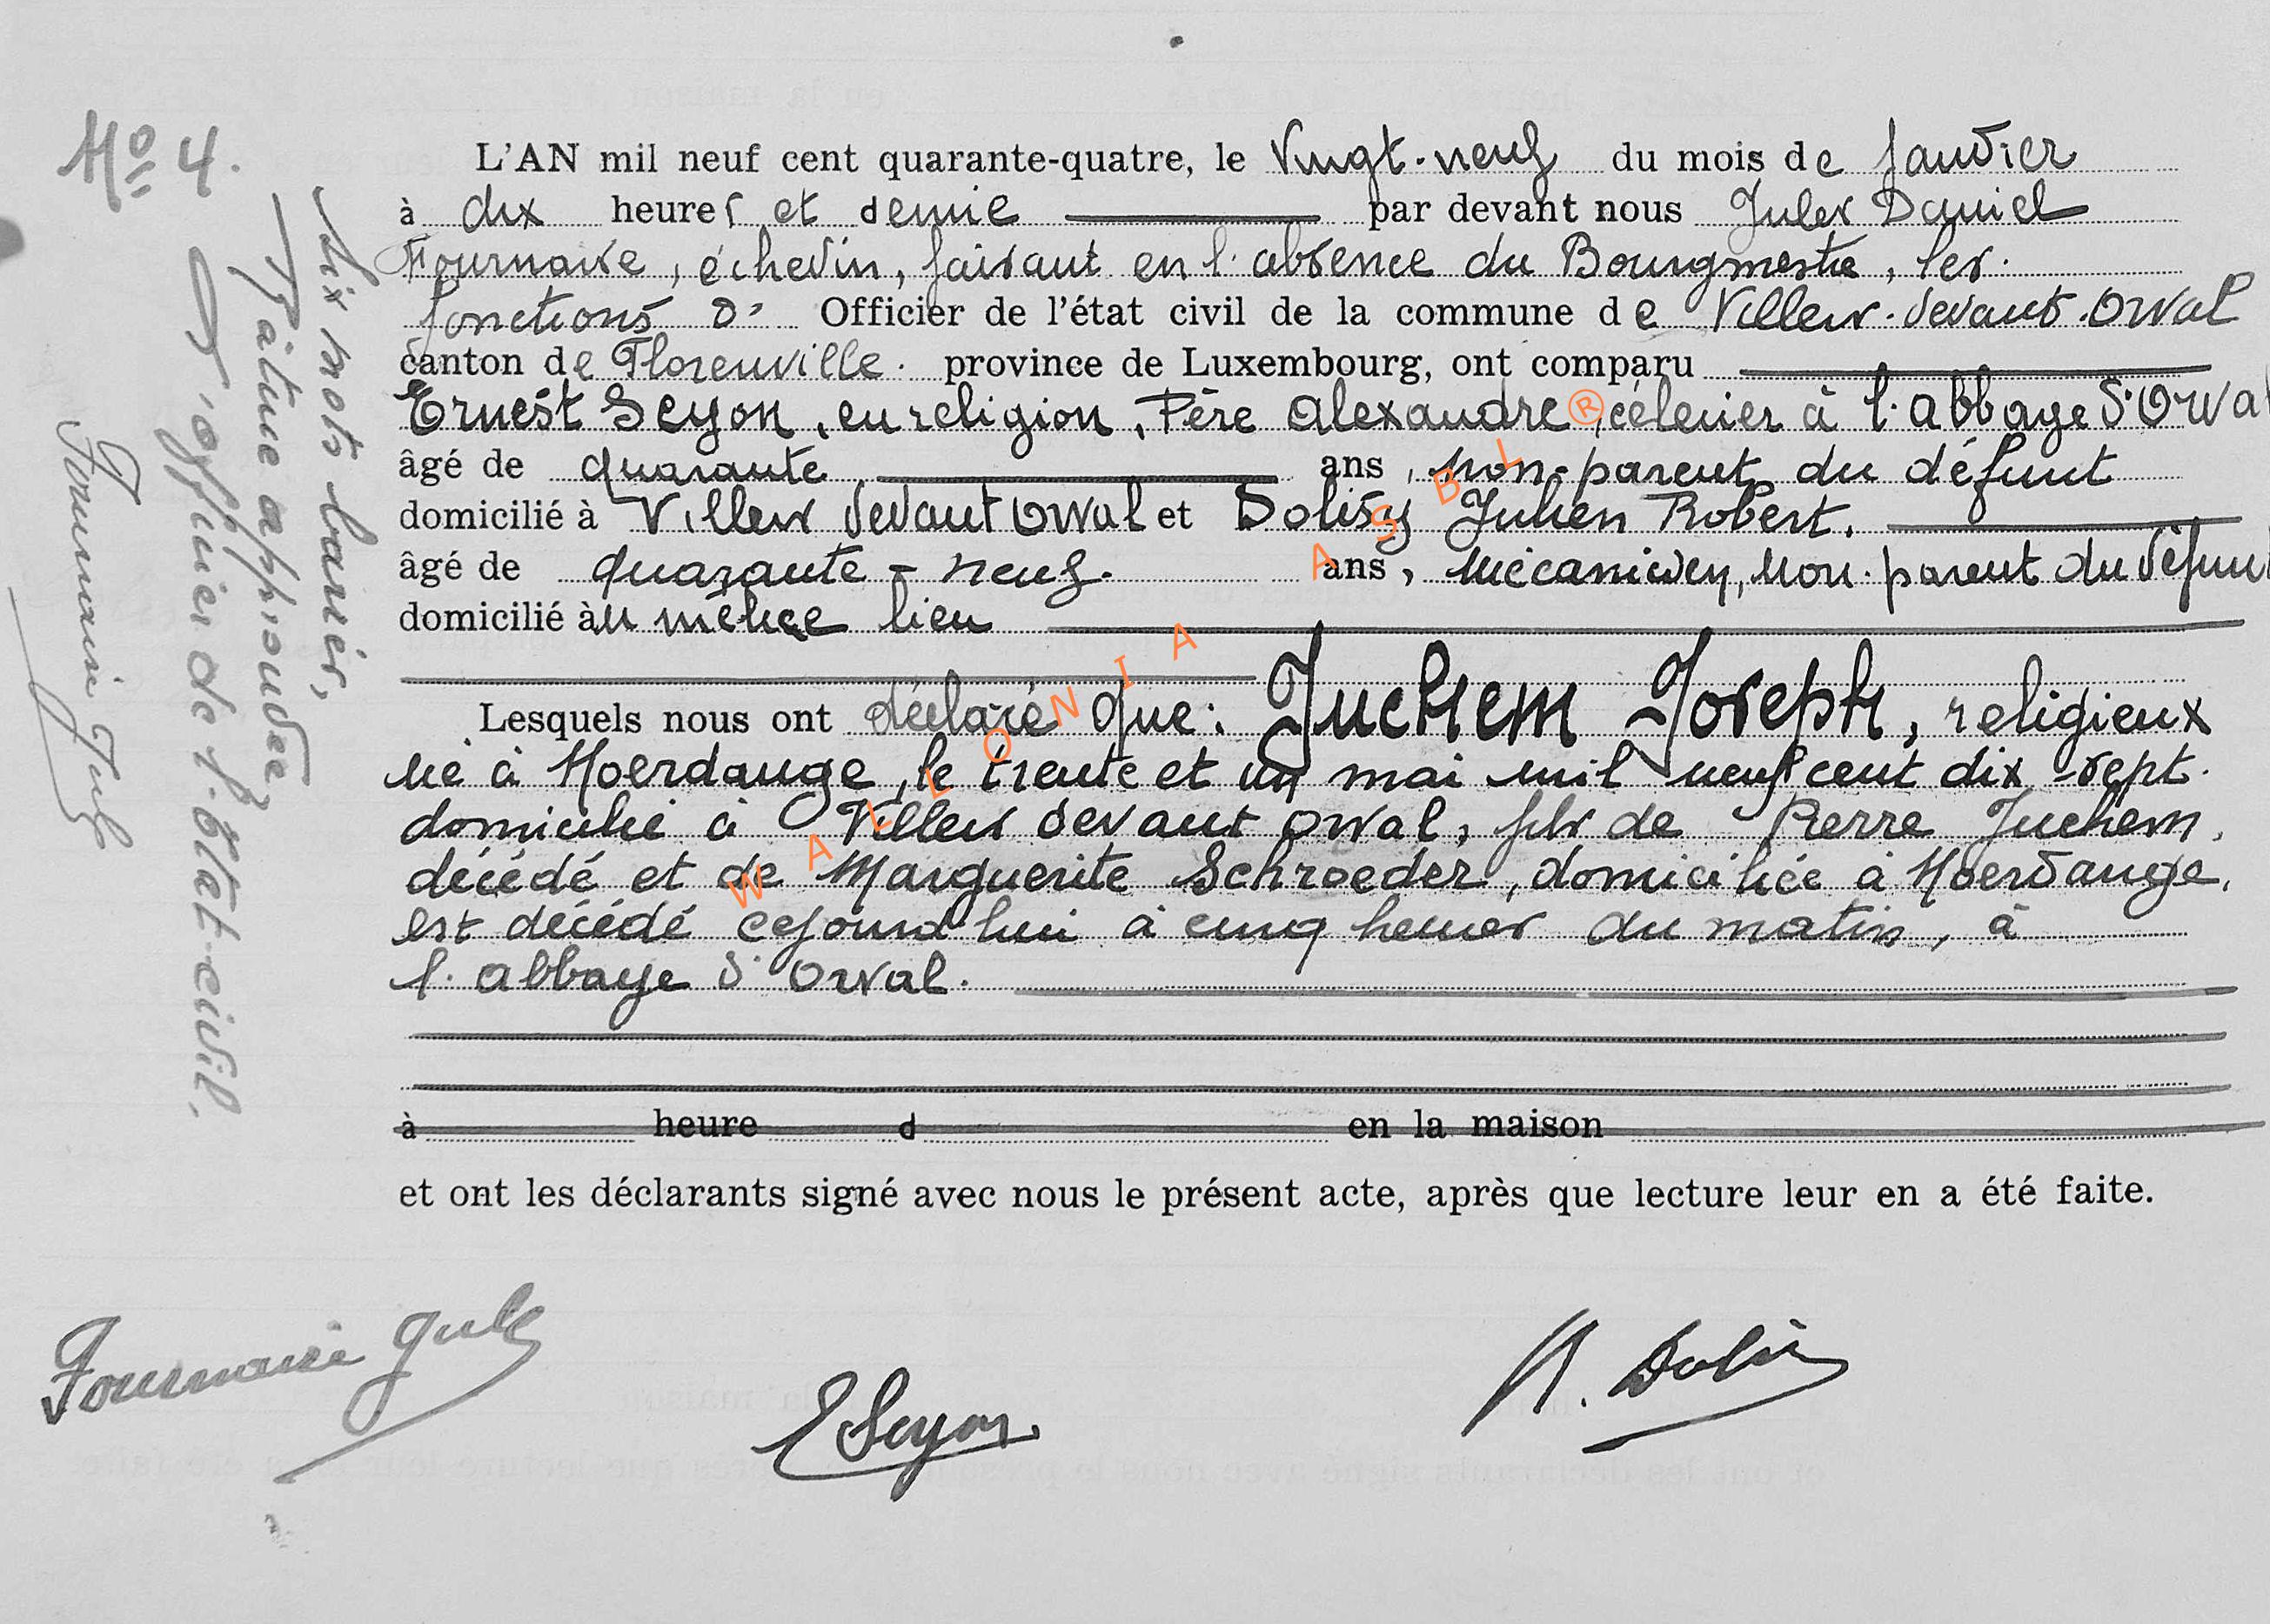 No 4.
Six mots barrés,
Râture approuvée
L'officier de l'état-civil.
Fournaise Jules
L'AN mil neuf cent quarante-quatre, le Vingt-neuf du mois de Janvier
à dix heures et demie par devant nous Jules Daniel
Fournaise, échevin, faisant en l'absence du Bourgmestre, les
fonctions d' Officier de l'état civil de la commune de Villers-devant-Orval
canton de Florenville. province de Luxembourg, ont comparu
Ernest Seyon, en religion, Père Alexandre, célerier à l'abbaye d'Orval
âgé de quarante ans, non-parent du défunt
domicilié à Villers devant Orval et Dolisy Julien Robert.
âgé de quarante-neuf. ans, mécanicien, non-parent du défunt
domicilié au même lieu
Lesquels nous ont déclaré que: Juchem Joseph, religieux
né à Hoerdange, le trente et un mai mil neuf cent dix-sept.
domicilié à Villers devant Orval, fils de Pierre Juchem,
décédé et de Marguerite Schroeder, domiciliée à Hoerdange,
est décédé cejourd'hui à cinq heures du matin, à
l'abbaye d'Orval.
à heure d en la maison
et ont les déclarants signé avec nous le présent acte, après que lecture leur en a été faite.
Fournaise Jules
E Seyon.
R. Dolisy
WALLONIA ASBL ®